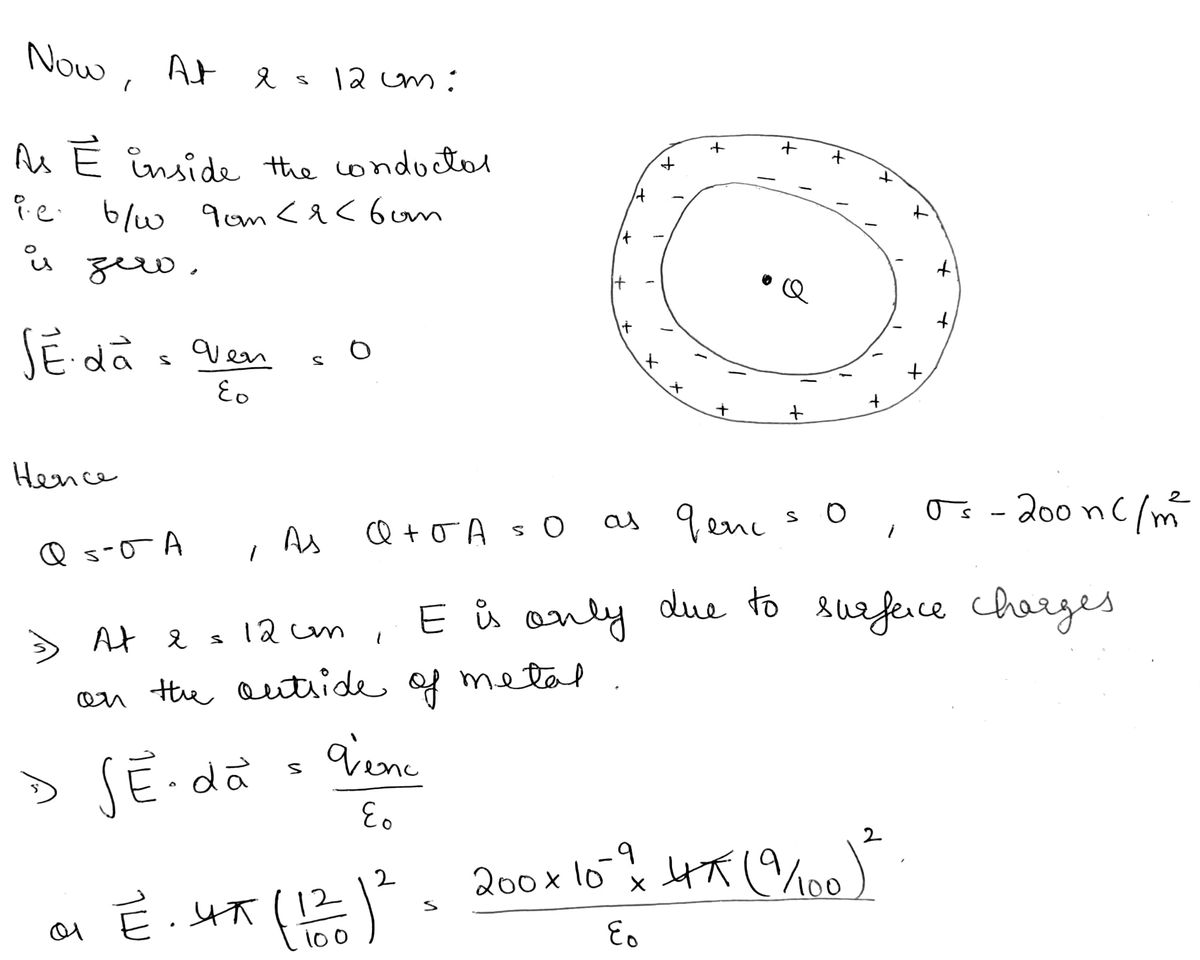 Now, At r = 12 cm:
As E⃗ inside the conductor
i.e. b/w 9cm < r < 6cm
is zero.
∫E⃗·da⃗ = qen/ε₀ = 0
+ + + + + + + + + + + + + + + + + + + +
- - - - - - - - - - - - - - - - -
• Q
Hence
Q = -σA , As Q + σA = 0 as qenc = 0 , σ = -200nC/m²
⇒ At r = 12 cm, E is only due to surface charges
on the outside of metal.
⇒ ∫E⃗·da⃗ = q'enc/ε₀
or E⃗ · 4π (12/100)² = 200 x 10⁻⁹ x 4π (9/100)² / ε₀